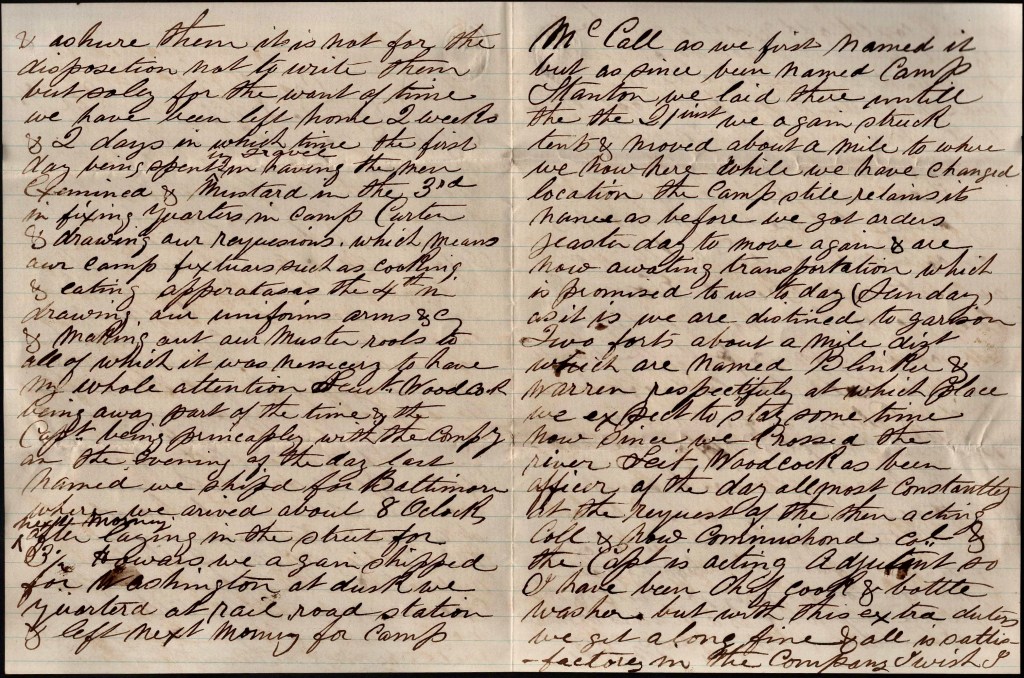 & ashure them it is not for the
disposition not to write them
but soley for the want of time
we have been left home 2 weeks
& 2 days in which time the first
day being spent in travel in having the men
Examined & Mustard in the 3rd
in fixing Quarters in camp Curten
& drawing our requesions. which means
our camp fixtuars such as cooking
& eating apperatas as the 4th in
drawing our uniforms arms &c
& making out our Muster rools to
all of which it was nessicery to have
my whole attention Lieut. Woodcock
being away part of the time & the
Capt. being princaply with the Compy
on the Evening of the day last
Named we shipd for Baltimore
where we arived about 8 Oclock
next morning
after laying in the street for
3½ Howars we again shipped
for Washington at dusk we
Quarterd at rail road station
& left next Morning for Camp
McCall as we first named it
but as since been named Camp
Stanton we laid there untill
the the 21 inst we again struck
tents & moved about a mile to where
we now here while we have changed
location the camp still retains its
name as before we got orders
yeaster day to move again & are
now awating transportation which
is promised to us to day (Sunday)
as it is we are distined to garison
Two forts about a mile dist
which are named Blinker &
Warren respectifuly at which place
we expsect to stay some time
now since we Crossed the
river Leit, Woodcock as been
officer of the day allmost constantley
at the request of the then acting
Coll & now commishond Col. &
the Capt is acting Adjutant so
I have been Chef cook & bottle
washer but with this extra duties
we get along fine & all is sattis-
-factory in the Company I wish I